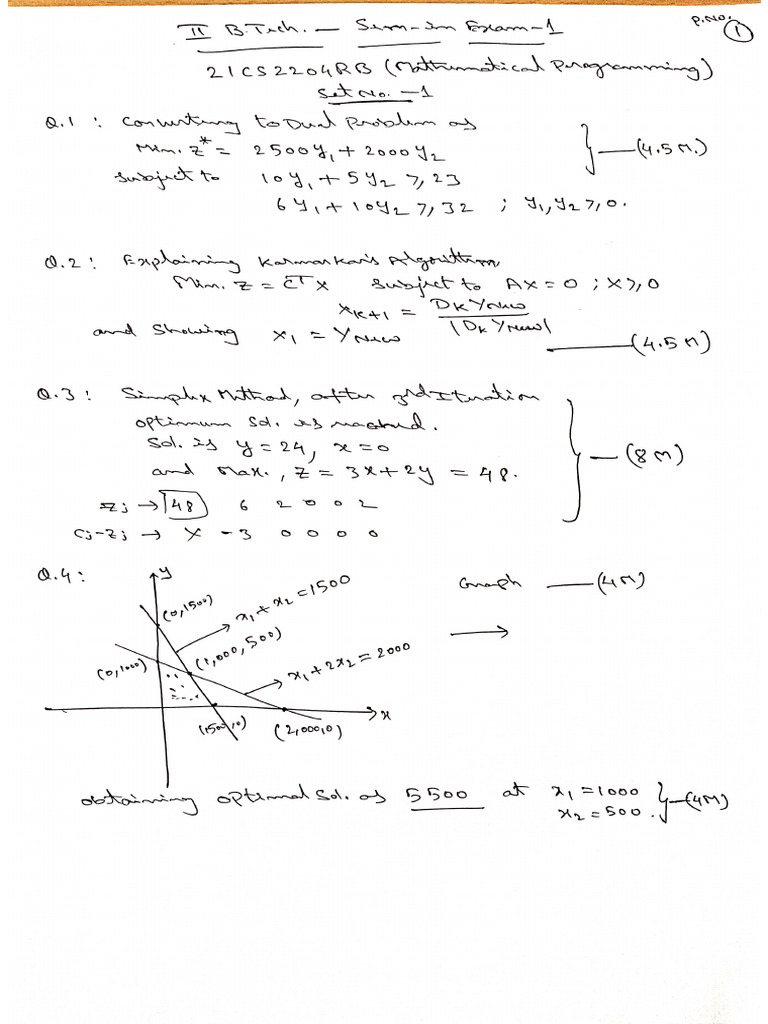 II B.Tech. — Sem-in Exam-1
P.No. 1
21CS2204RB (Mathematical Programming)
Set No. -1
Q.1 : Converting to Dual Problem as
Min. Z* = 2500y₁ + 2000y₂
Subject to 10y₁ + 5y₂ ≥ 23
6y₁ + 10y₂ ≥ 32 ; y₁, y₂ ≥ 0.
} — (4.5 M.)
Q.2 : Explaining Karmarkar's Algorithm
Min. Z = CᵀX Subject to AX = 0 ; X ≥ 0
X_{K+1} = D_K Y_{New} / |D_K Y_{New}|
and showing X₁ = Y_{New}
—— (4.5 M)
Q.3 : Simplex Method, after 3rd Iteration
optimum Sol. is reached.
Sol. is y = 24, x = 0
and Max., Z = 3x + 2y = 48.
} — (8 M)
Zj → 48 6 2 0 0 2
Cj-Zj → X -3 0 0 0 0
Q.4 :
y
(0,1500)
x₁ + x₂ = 1500
Graph —— (4M)
(0,1000)
(1,000, 500)
x₁ + 2x₂ = 2000
x
(1500,0)
(2,000,0)
obtaining optimal Sol. as 5500 at x₁ = 1000
x₂ = 500.
} — (4M)